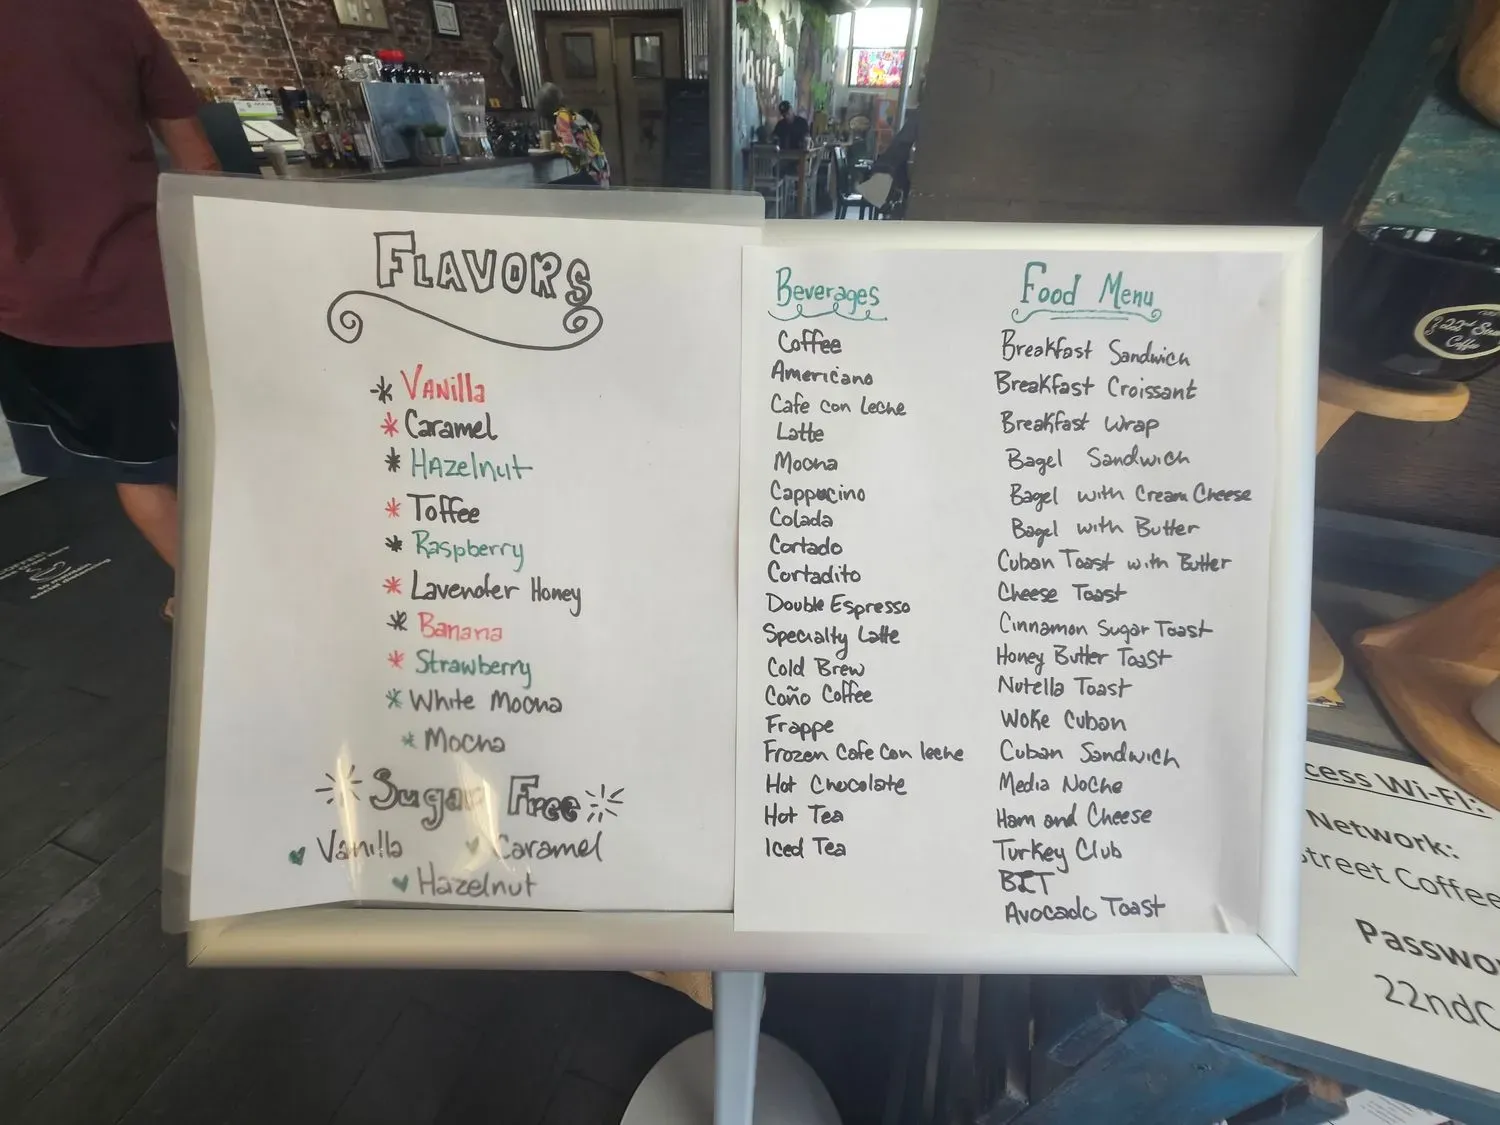 FLAVORS
Vanilla
Caramel
Hazelnut
Toffee
Raspberry
Lavender Honey
Banana
Strawberry
White Mocha
Mocha
Sugar Free
Vanilla
Caramel
Hazelnut
Beverages
Coffee
Americano
Cafe con leche
Latte
Mocha
Cappucino
Colada
Cortado
Cortadito
Double Espresso
Specialty Latte
Cold Brew
Coño Coffee
Frappe
Frozen Cafe Con leche
Hot Chocolate
Hot Tea
Iced Tea
Food Menu
Breakfast Sandwich
Breakfast Croissant
Breakfast Wrap
Bagel Sandwich
Bagel with Cream Cheese
Bagel with Butter
Cuban Toast with Butter
Cheese Toast
Cinnamon Sugar Toast
Honey Butter Toast
Nutella Toast
Woke Cuban
Cuban Sandwich
Media Noche
Ham and Cheese
Turkey Club
BLT
Avocado Toast
22nd
Coffee
cess Wi-FI:
Network:
Street Coffee
Passwo
22ndC